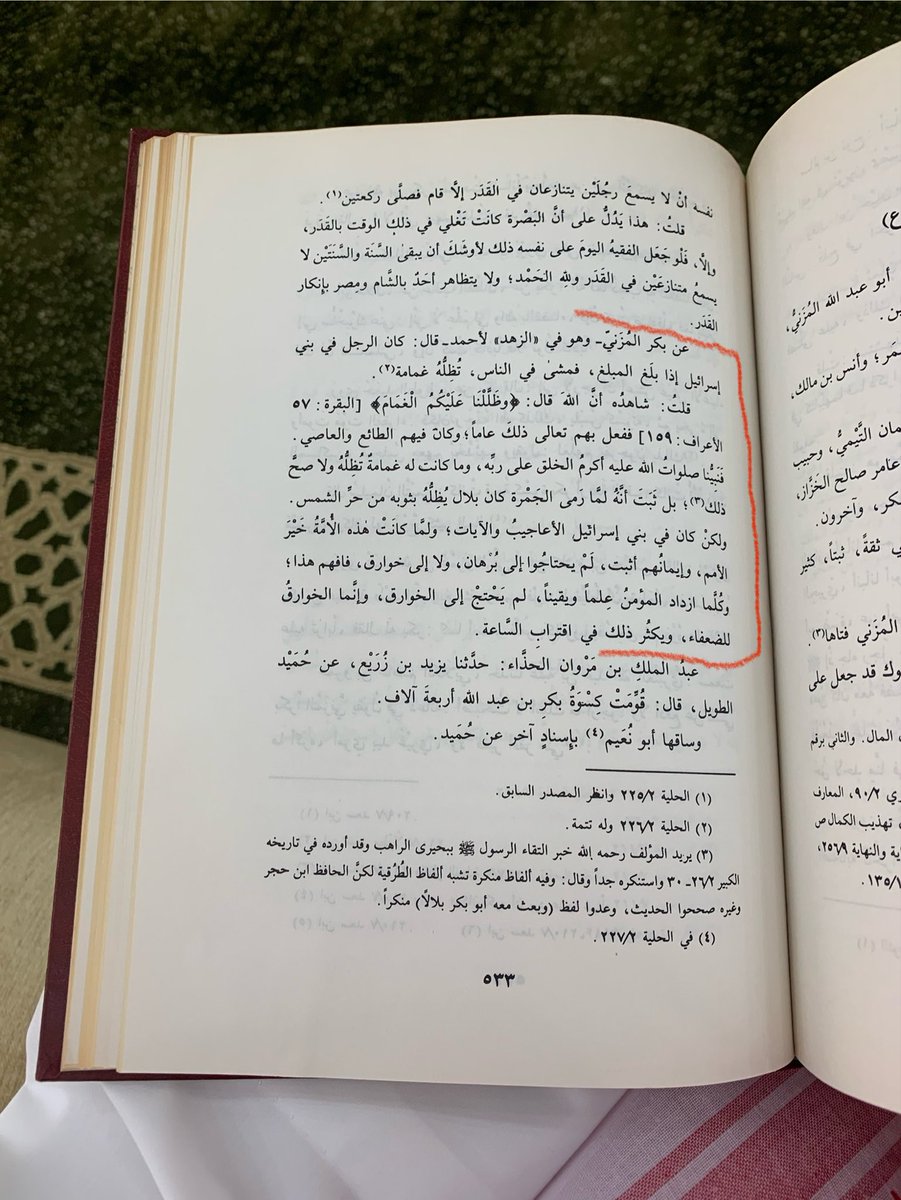 نفسه أنْ لا يسمعَ رجُلَيْن يتنازعان في القَدَر إلَّا قام فصلَّى ركعتين(١).
قلتُ: هذا يَدُلُّ على أنَّ البَصْرة كانَتْ تَغْلي في ذلك الوقت بالقَدَر،
وإلَّا، فَلَو جَعَل الفقيهُ اليومَ على نفسه ذلك لأوشَكَ أن يبقى السَّنَة والسَّنَتَيْن لا
يسمعُ متنازعَيْن في القَدَر ولله الحَمْد؛ ولا يتظاهر أحَدٌ بالشَّام ومِصر بإنكار
القَدَر.
عن بكر المُزَنيّ ـ وهو في «الزهد» لأحمد ـ قال: كان الرجل في بني
إسرائيل إذا بلَغ المبلغ، فمشىٰ في الناس، تُظِلُّهُ غمامة(٢).
قلتُ: شاهدُه أنَّ اللهَ قال: ﴿وظَلَّلْنَا عَلَيْكُمُ الغَمَامَ﴾ [البقرة: ٥٧
الأعراف: ١٥٩] ففعل بهم تعالى ذلكَ عاماً؛ وكان فيهم الطائع والعاصي.
فنَبيُّنا صلواتُ الله عليه أكرمُ الخلق على ربِّه، وما كانت له غمامةٌ تُظلُّه ولا صحَّ
ذلك(٣)؛ بل ثبَتَ أنَّهُ لمَّا رَمىٰ الجَمْرة كان بلال يُظِلُّه بثوبه من حرِّ الشمس.
ولكنْ كان في بني إسرائيل الأعاجيبُ والآيات؛ ولمَّا كانَتْ هذه الأُمَّةُ خَيْرَ
الأمم، وإيمانُهم أثبت، لَمْ يحتاجُوا إلى بُرْهان، ولا إلى خوارق، فافهم هذا؛
وكُلَّما ازداد المؤمنُ عِلماً ويقيناً، لم يَحْتجْ إلى الخوارق، وإنَّما الخوارقُ
للضعفاء، ويكثُر ذلك في اقتراب السَّاعة.
عبدُ الملكِ بن مَرْوان الحذَّاء: حدَّثنا يزيد بن زُرَيْع، عن حُمَيْد
الطويل، قال: قُوِّمَتْ كِسْوَةُ بكرِ بن عبد الله أربعةَ آلاف.
وساقها أبو نُعَيم(٤) بإسنادٍ آخر عن حُمَيد.
(١) الحلية ٢٢٥/٢ وانظر المصدر السابق.
(٢) الحلية ٢٢٦/٢ وله تتمة.
(٣) يريد المؤلف رحمه الله خبر التقاء الرسول ﷺ ببحيرى الراهب وقد أورده في تاريخه
الكبير ٢٦/٢ـ ٣٠ واستنكره جداً وقال: وفيه ألفاظ منكرة تشبه ألفاظ الطُّرُقية لكنَّ الحافظ ابن حجر
وغيره صححوا الحديث، وعدوا لفظ (وبعث معه أبو بكر بلالاً) منكراً.
(٤) في الحلية ٢٢٧/٢.
٥٣٣
ع)
أبو عبد الله المُزَنيُّ،
بن.
مَر؛ وأنس بن مالك،
مان التَّيْميُّ، وحبيب
عامر صالح الخَزَّاز،
كر، وآخرون.
ي ثقةً، ثبتاً، كثير
المُزَني فتاها(٣).
وك قد جعل على
المال. والثاني برقم
ي ٩٠/٢، المعارف
تهذيب الكمال ص
اية والنهاية ٢٥٦/٩،
١٣٥/١.